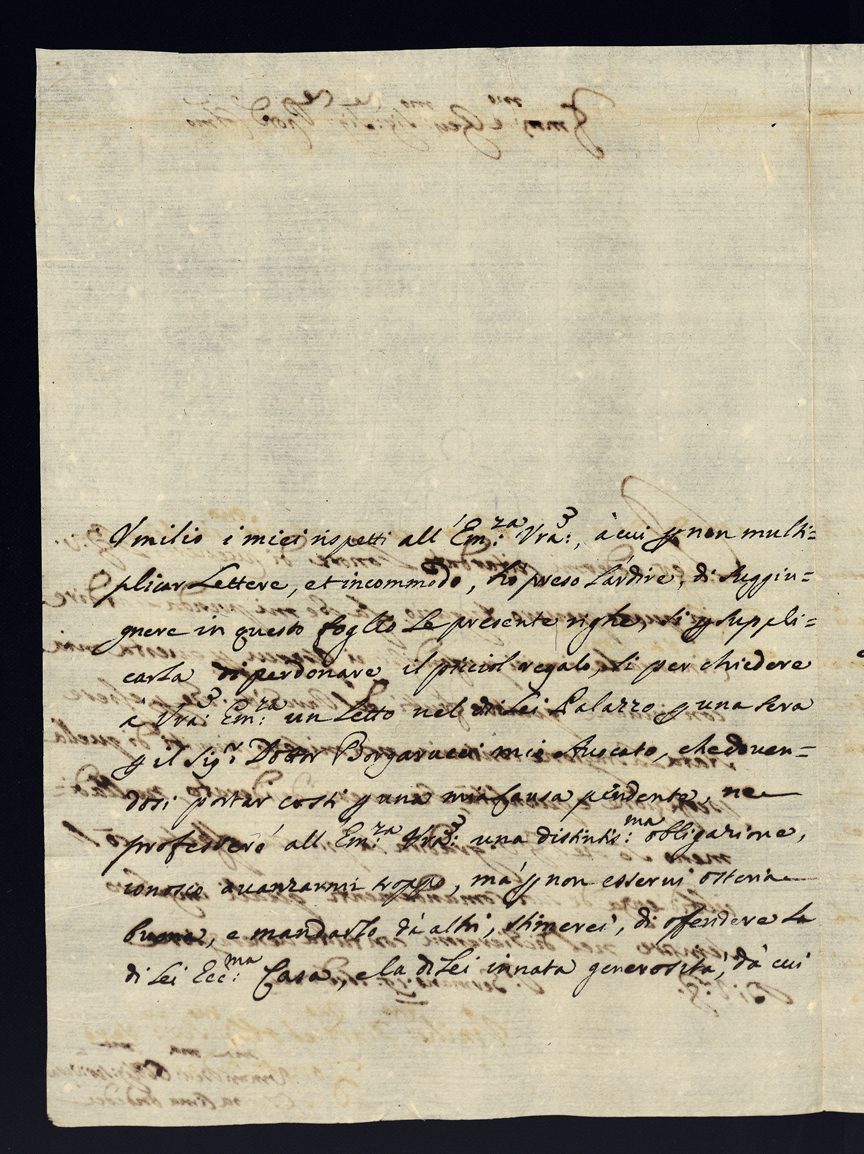 Vmilio i miei rispetti all'Em:za Vra:, à cui p non multi=
plicar Lettere, et incommodo, hò preso L'ardire, di suggiu=
gnere in questo foglio Le presente righe, sì p suppli=
carla di perdonare il picciol regalo, sì per chiedere
a Vra: Em:za un Letto nel di Lei Palazzo p una sera
p il Sig.r Dottor Borgarucci mio Auocato, che douen=
dosi portar costì p una mia Causa pendente, ne
professerò all'Em:za Vra: una distintis:ma obligazione,
conosco auanzarmi troppo, mà p non esserui osteria
buona, e mandarlo dà altri, stimerei, di ofendere La
di Lei Ecc:ma Casa, e la di Lei innata generosità, dà cui